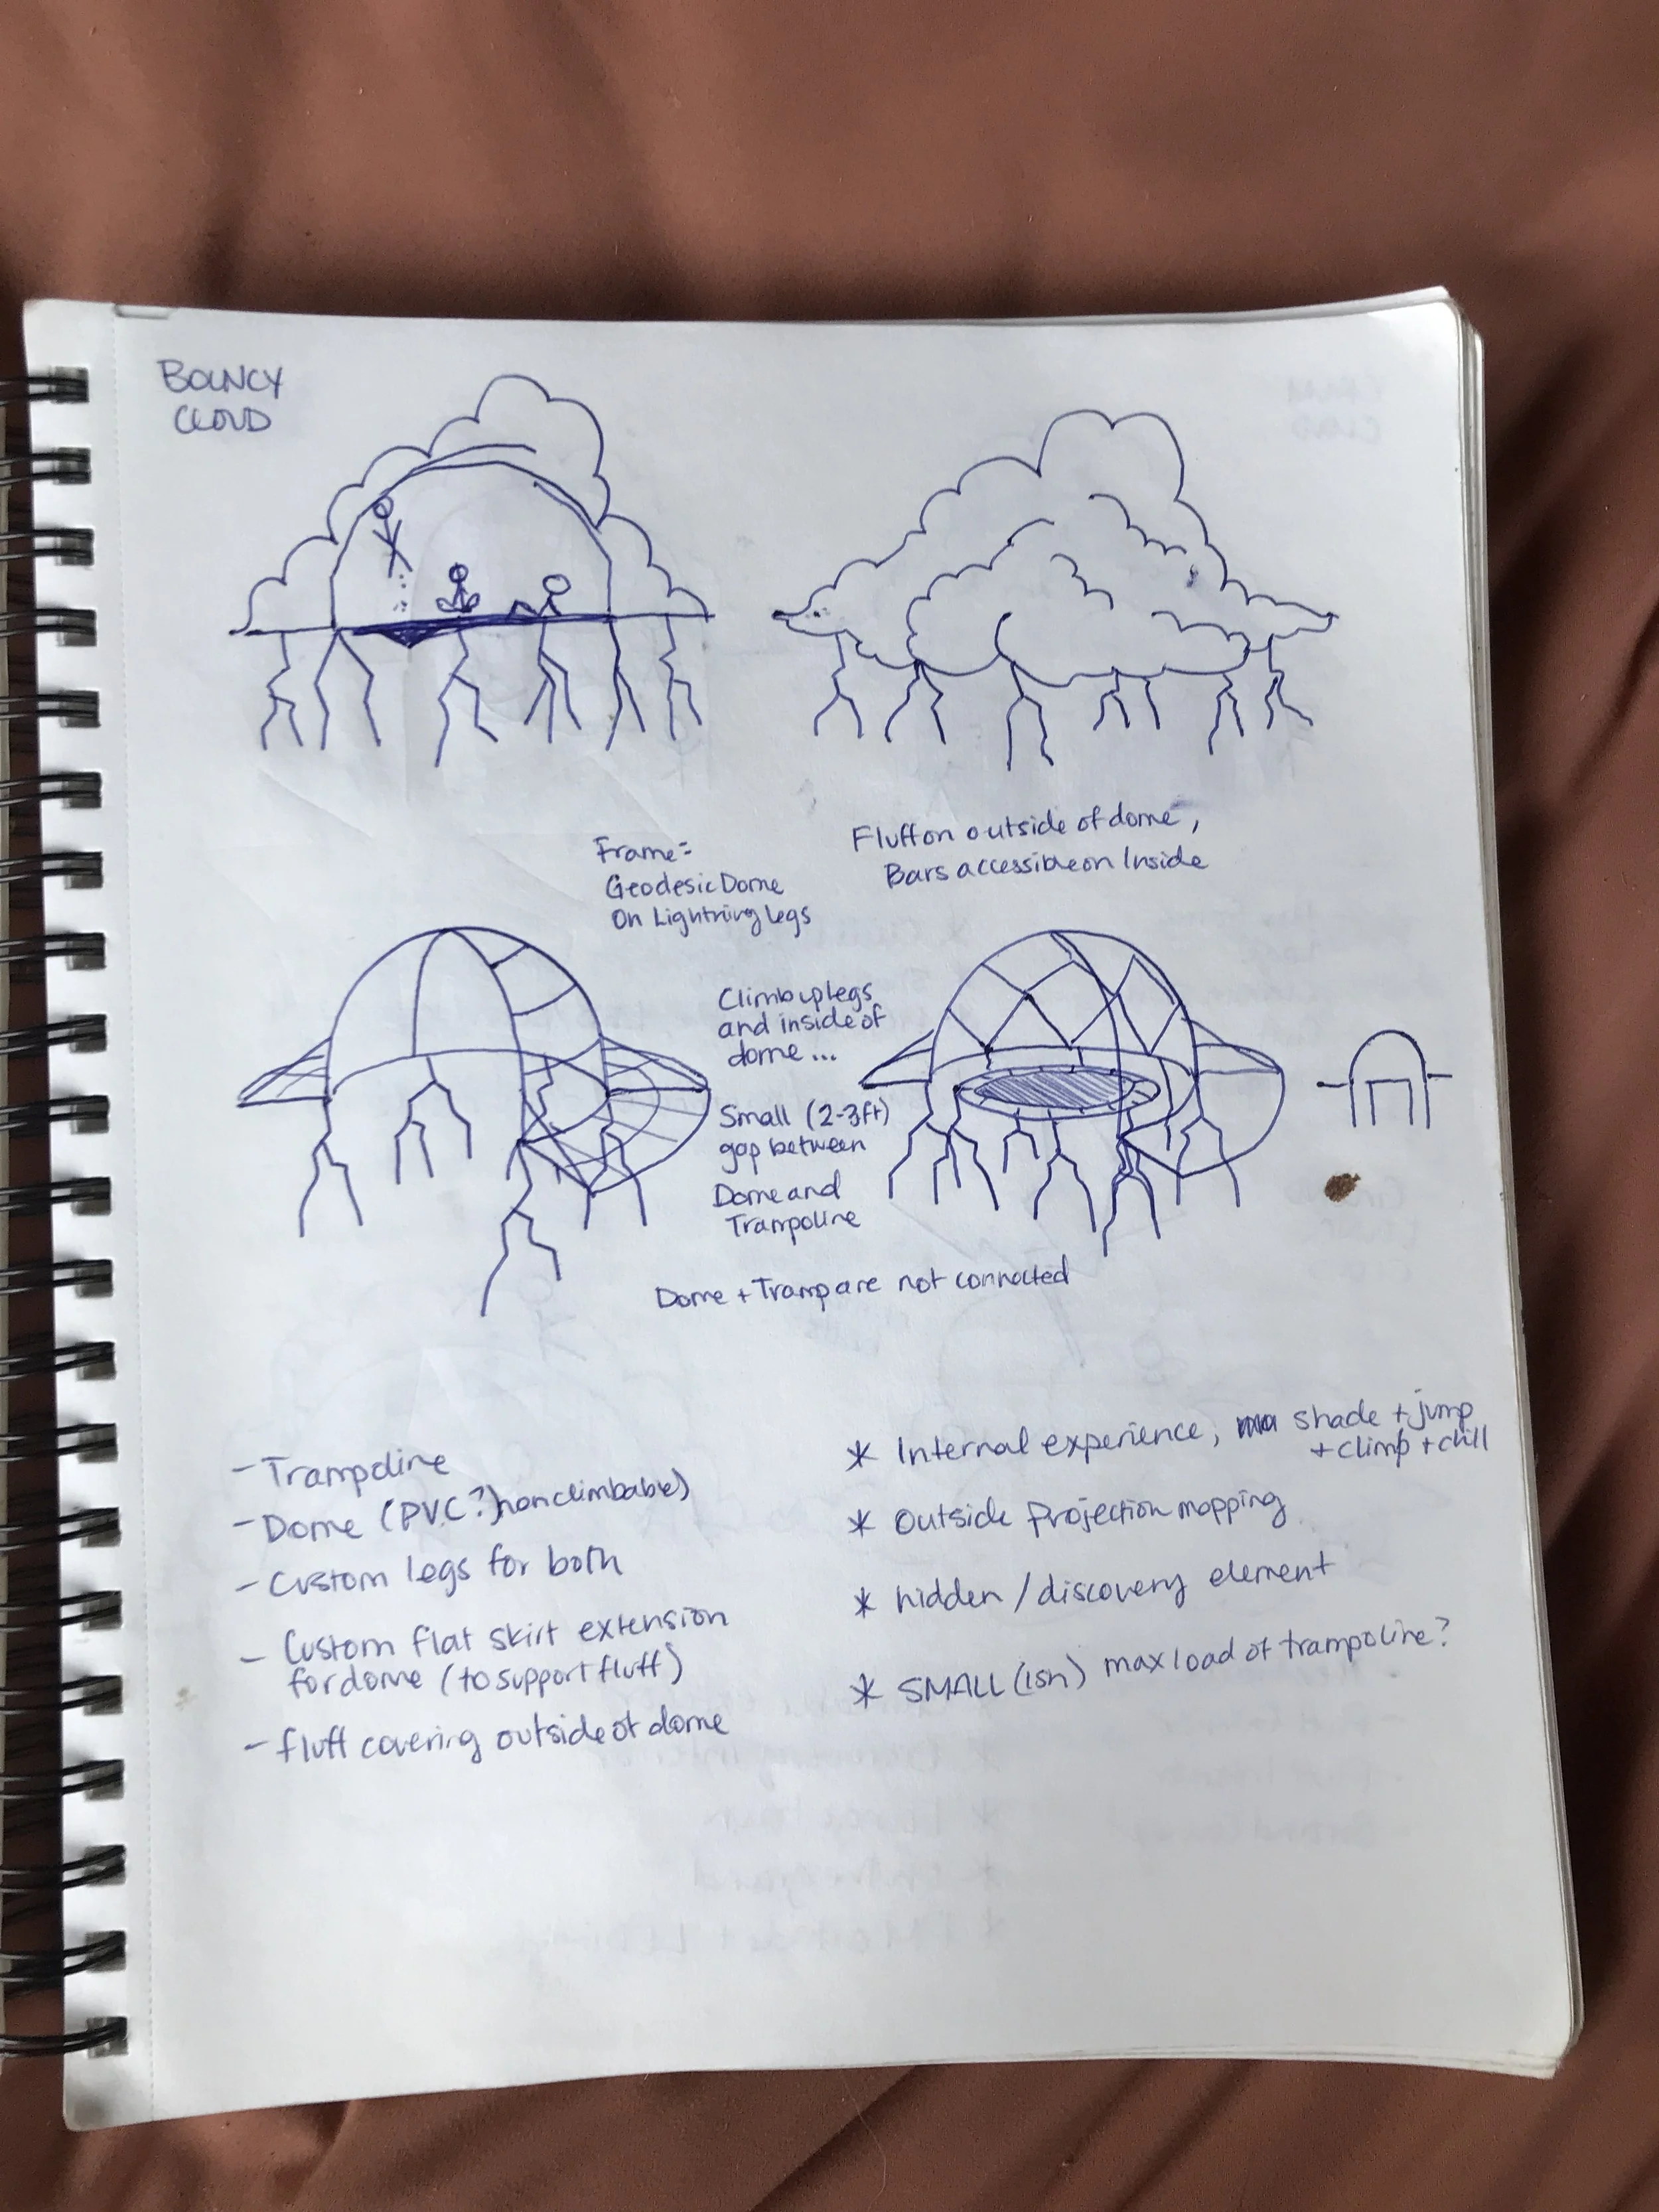 BOUNCY
CLOUD
Frame=
Geodesic Dome
On Lightning legs
Fluff on outside of dome,
Bars accessible on Inside
Climb up legs
and inside of
dome...
Small (2-3ft)
gap between
Dome and
Trampoline
Dome + Tramp are not connected
- Trampoline
- Dome (PVC?) nonclimbable)
- Custom legs for both
- Custom flat skirt extension
for dome (to support fluff)
- fluff covering outside of dome
* Internal experience, shade + jump
+ climp + chill
* Outside Projection mapping
* hidden / discovery element
* SMALL (ish) max load of trampoline?